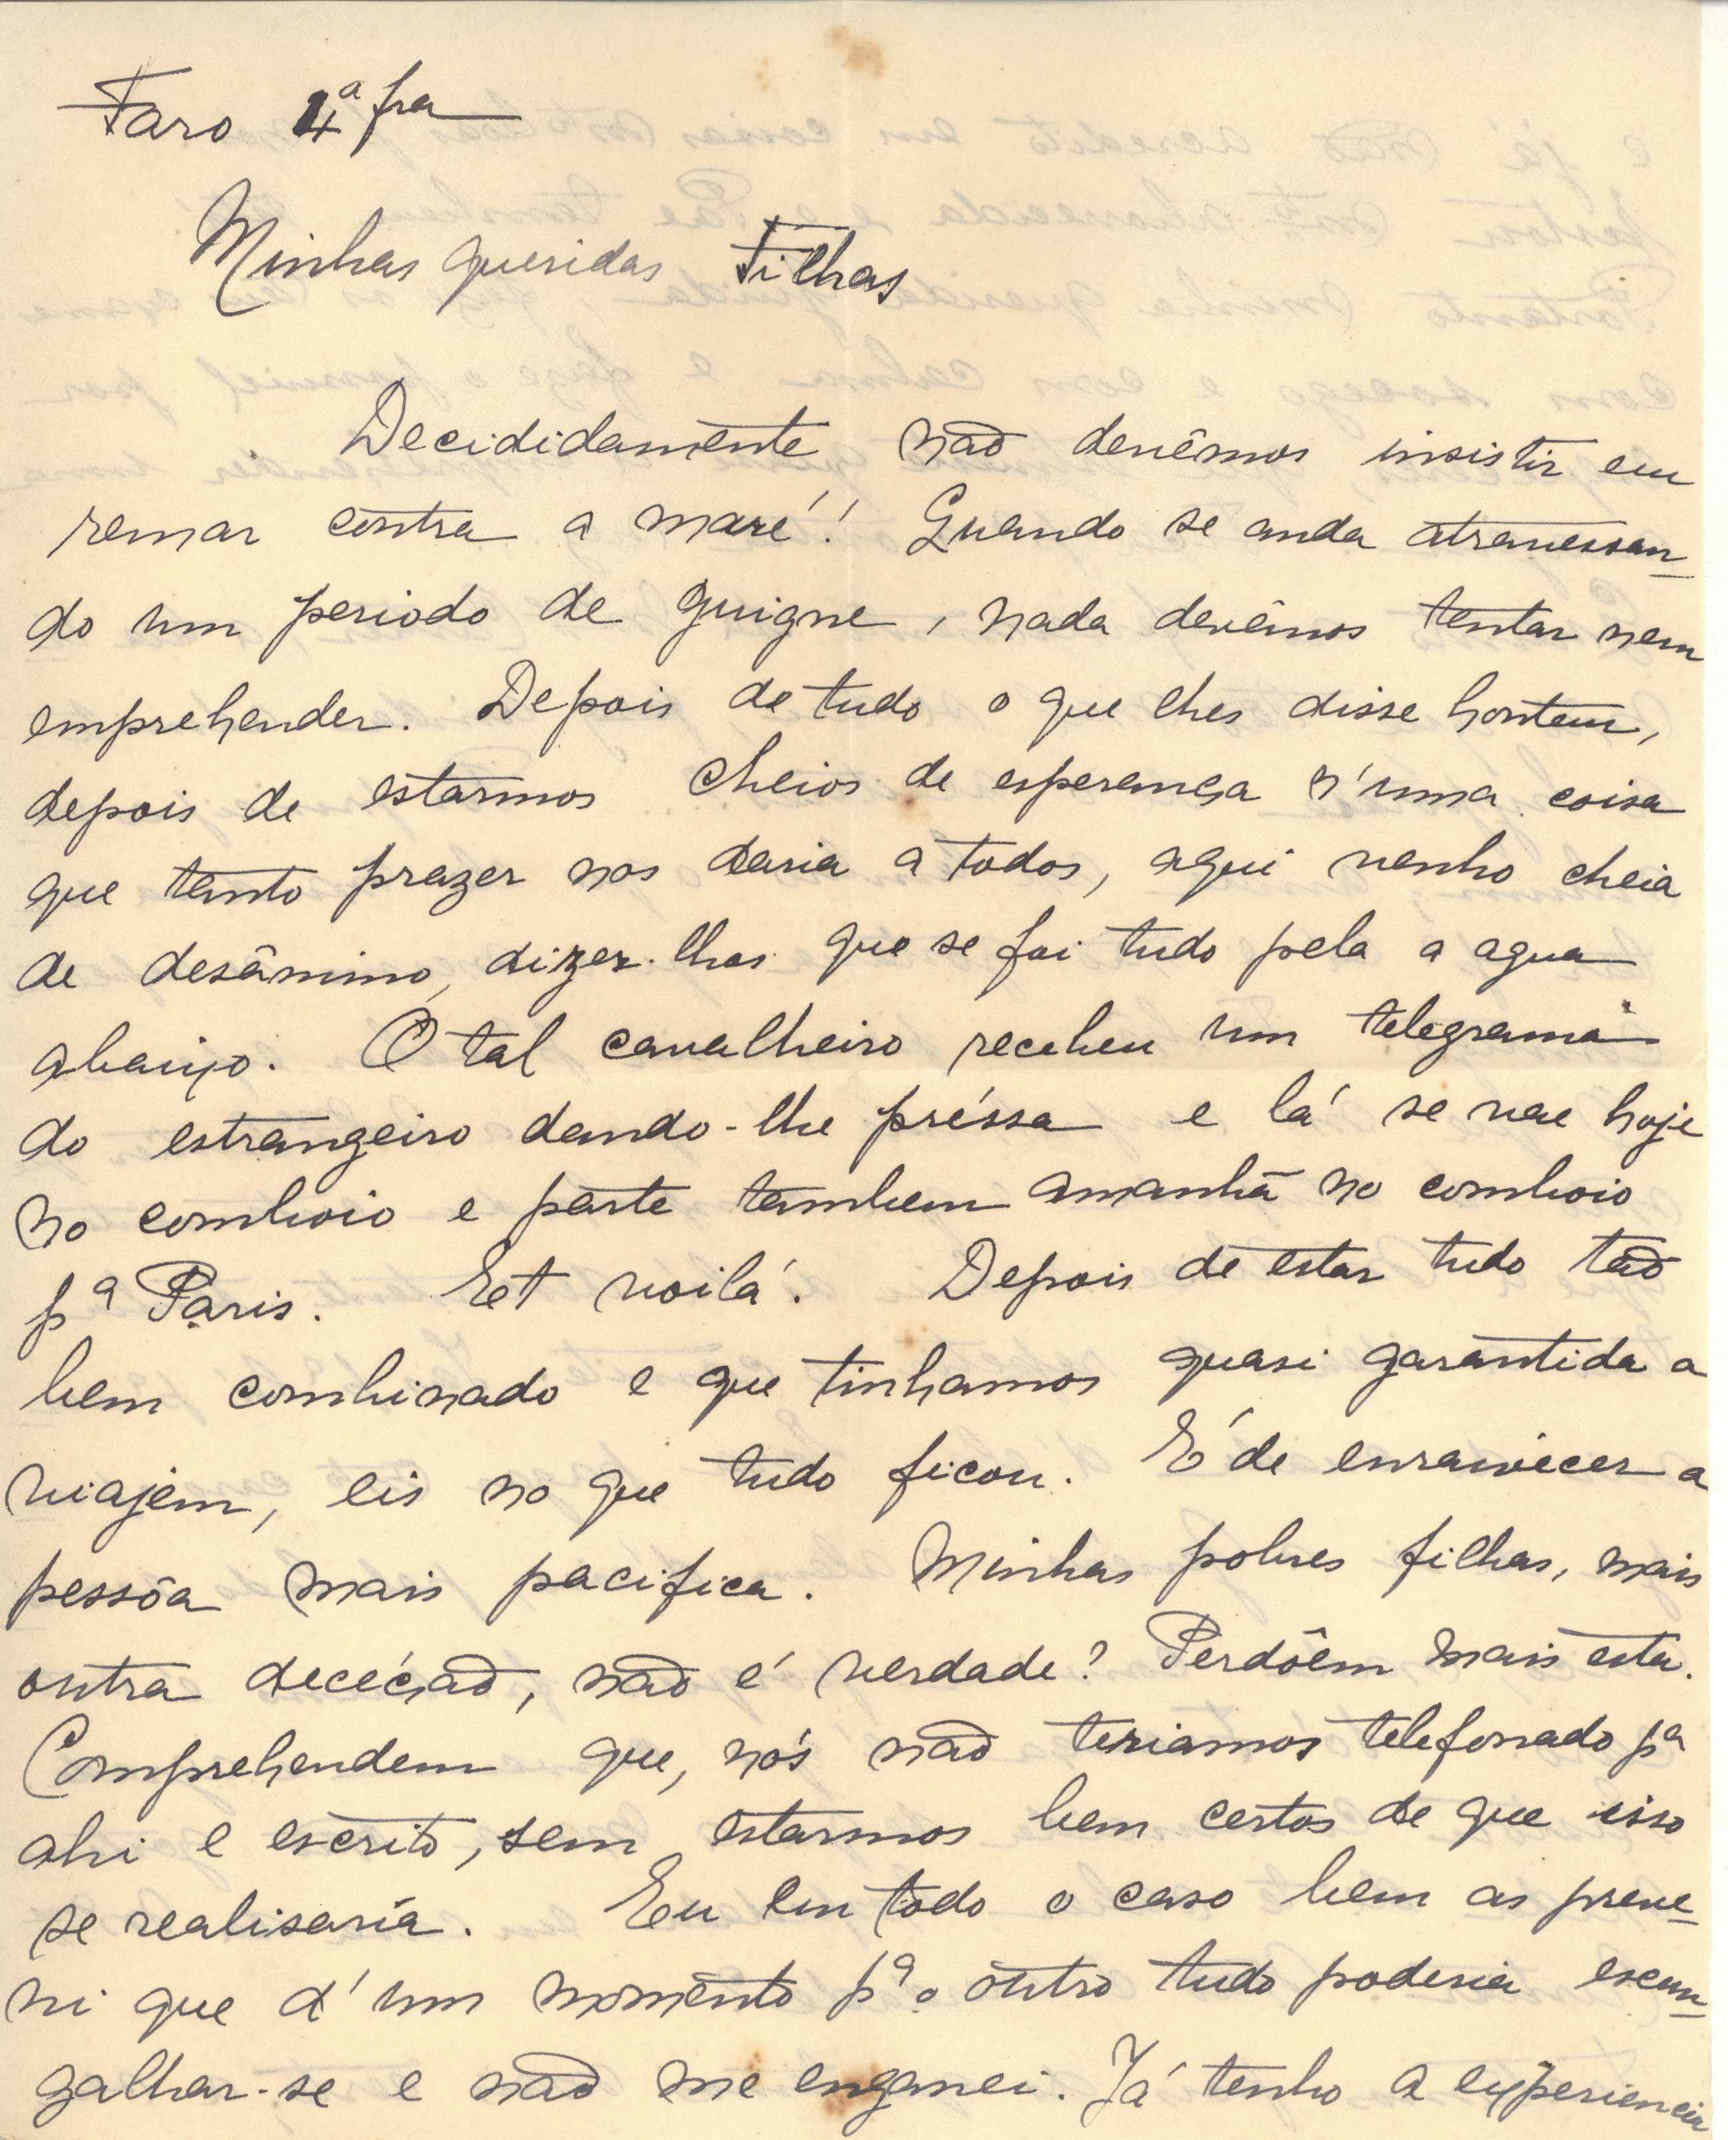 Faro 4ª fra
Minhas queridas Filhas
Decididamente não devêmos insistir em
remar contra a maré! Quando se anda atravessan-
do um periodo de guigne, nada devêmos tentar nem
emprehender. Depois de tudo o que lhes disse hontem,
depois de estarmos cheios de esperança n'uma coisa
que tanto prazer nos daria a todos, aqui venho cheia
de desânimo, dizer-lhes que se foi tudo pela a agua
abaixo. O tal cavalheiro recebeu um telegrama
do estrangeiro dando-lhe préssa e lá se vae hoje
no comboio e parte tambem amanhã no comboio
pª Paris. Et voilá. Depois de estar tudo tão
bem combinado e que tinhamos quasi garantida a
viajem, eis no que tudo ficou. É de enraivecer a
pessôa mais pacifica. Minhas pobres filhas, mais
outra decéção, não é verdade? Perdôem mais esta.
Comprehendem que, nós não teriamos telefonado pª
ahi e escrito, sem estarmos bem certos de que isso
se realisaria. Eu em todo o caso bem as preve-
ni que d'um momento pª o outro tudo poderia escan-
galhar-se e não me enganei. Já tenho a experiencia